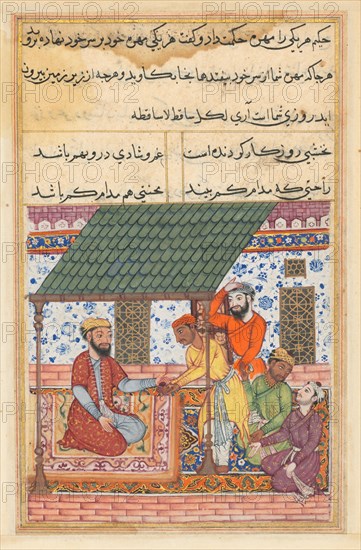 حکیم هر یکی را مهره حکمت داد و گفت هر یکی مهره خود بر سر خود نهاده بروید
هرجا که مهره شما از سر خود بیفتد همانجا بکاوید و هرچه از زیر زمین بیرون
آید روزی شما است آری لکل ساقط
نخشبی روزکار کردنده است غم و شادی درو بهم باشد
راحتی که مدام کم بیند محنتی هم مدام کم باشد